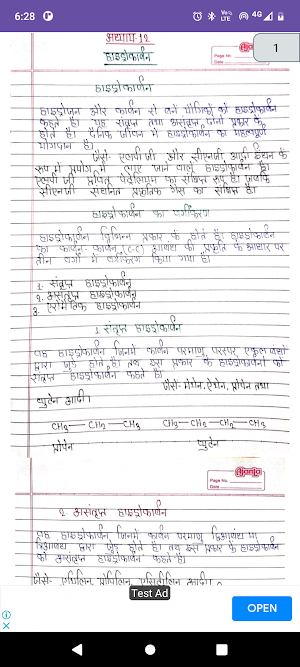 6:28
4G
अध्याय-12
हाइड्रोकार्बन
Ajanta
Page No.
Date
1
हाइड्रोकार्बन
हाइड्रोजन और कार्बन से बने यौगिकों को हाइड्रोकार्बन
कहते है। यह संतृप्त तथा असंतृप्त दोनो प्रकार के
होते है। दैनिक जीवन में हाइड्रोकार्बन का महत्वपूर्ण
योगदान है।
जैसे- एलपीजी और सीएनजी आदी ईंधन के
रूप में प्रयोग में लाए जाने वाले हाइड्रोकार्बन है।
एलपीजी द्रवित पेट्रोलियम का संक्षिप्त रूप है। जबकि
सीएनजी संघनित प्राकृतिक गैस का संक्षिप्त है।
हाइड्रोकार्बन का वर्गीकरण
हाइड्रोकार्बन विभिन्न प्रकार के होते है। हाइड्रोकार्बन
का कार्बन कार्बन (C-C) आबंध की प्रकृति के आधार पर
तीन वर्गो में वर्गीकरण किया गया है।
1. संतृप्त हाइड्रोकार्बन
२. असंतृप्त हाइड्रोकार्बन
३. एरोमेटिक हाइड्रोकार्बन
1. संतृप्त हाइड्रोकार्बन
वह हाइड्रोकार्बन जिनमें कार्बन परमाणु परस्पर एकल बंधो
द्वारा जुड़े होते है तब इस प्रकार के हाइड्रोकार्बनो को
संतृप्त हाइड्रोकार्बन कहते है।
जैसे- मेथेन, ऐथेन, प्रोपेन तथा
ब्युटेन आदी।
CH₃ — CH₂ — CH₃ CH₃ — CH₂ — CH₂ — CH₃
प्रोपेन ब्युटेन
Ajanta
Page No.
Date
२. असंतृप्त हाइड्रोकार्बन
वह हाइड्रोकार्बन जिनमें कार्बन परमाणु द्विआबंध या
त्रिआबंध द्वारा जुड़े होते है। तब इस प्रकार के हाइड्रोकार्बन
को असंतृप्त हाइड्रोकार्बन कहते है।
जैसे- एथिलिन, प्रोपिलिन, एसिटीलिन आदी।
Test Ad
OPEN